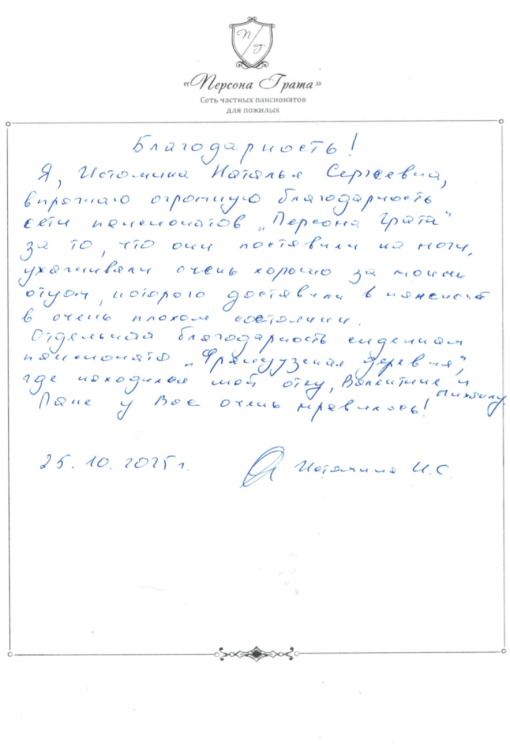 П Г
«Персона Грата»
Сеть частных пансионатов
для пожилых
Благодарность!
Я, Истомина Наталья Сергеевна,
выражаю огромную благодарность
сети пансионатов „Персона Грата"
за то, что они поставили на ноги,
ухаживали очень хорошо за моим
отцом, которого доставили в пансионат
в очень плохом состоянии.
Отдельная благодарность сиделкам
пансионата „Французская деревня",
где находился мой отец, Валентине и
Михаилу.
Папе у Вас очень нравилось!
25.10.2025 г. Истомина Н.С.